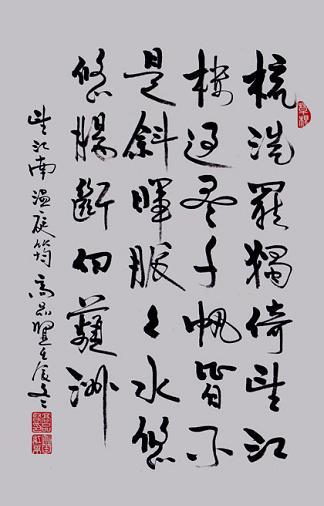 梳洗罷獨倚望江
樓過盡千帆皆不
是斜暉脈々水悠
悠腸斷白蘋洲
望江南 溫庭筠 高品 壬辰冬